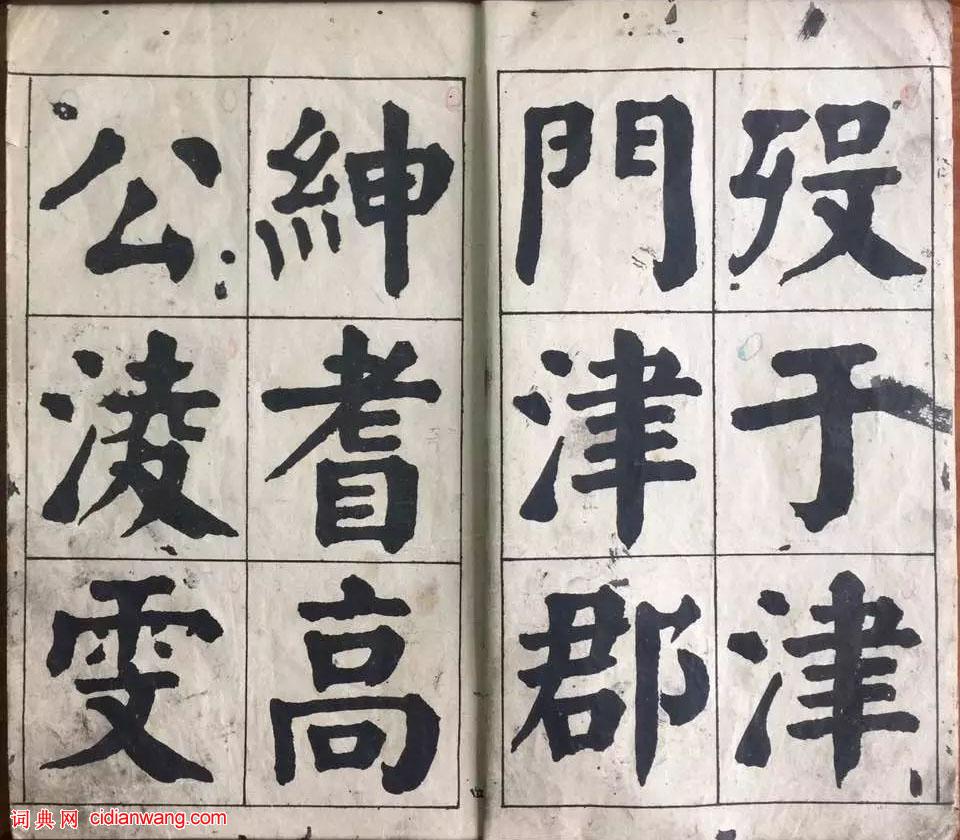 歿于津
門津郡
紳耆高
公淩雯
词典网 cidianwang.com